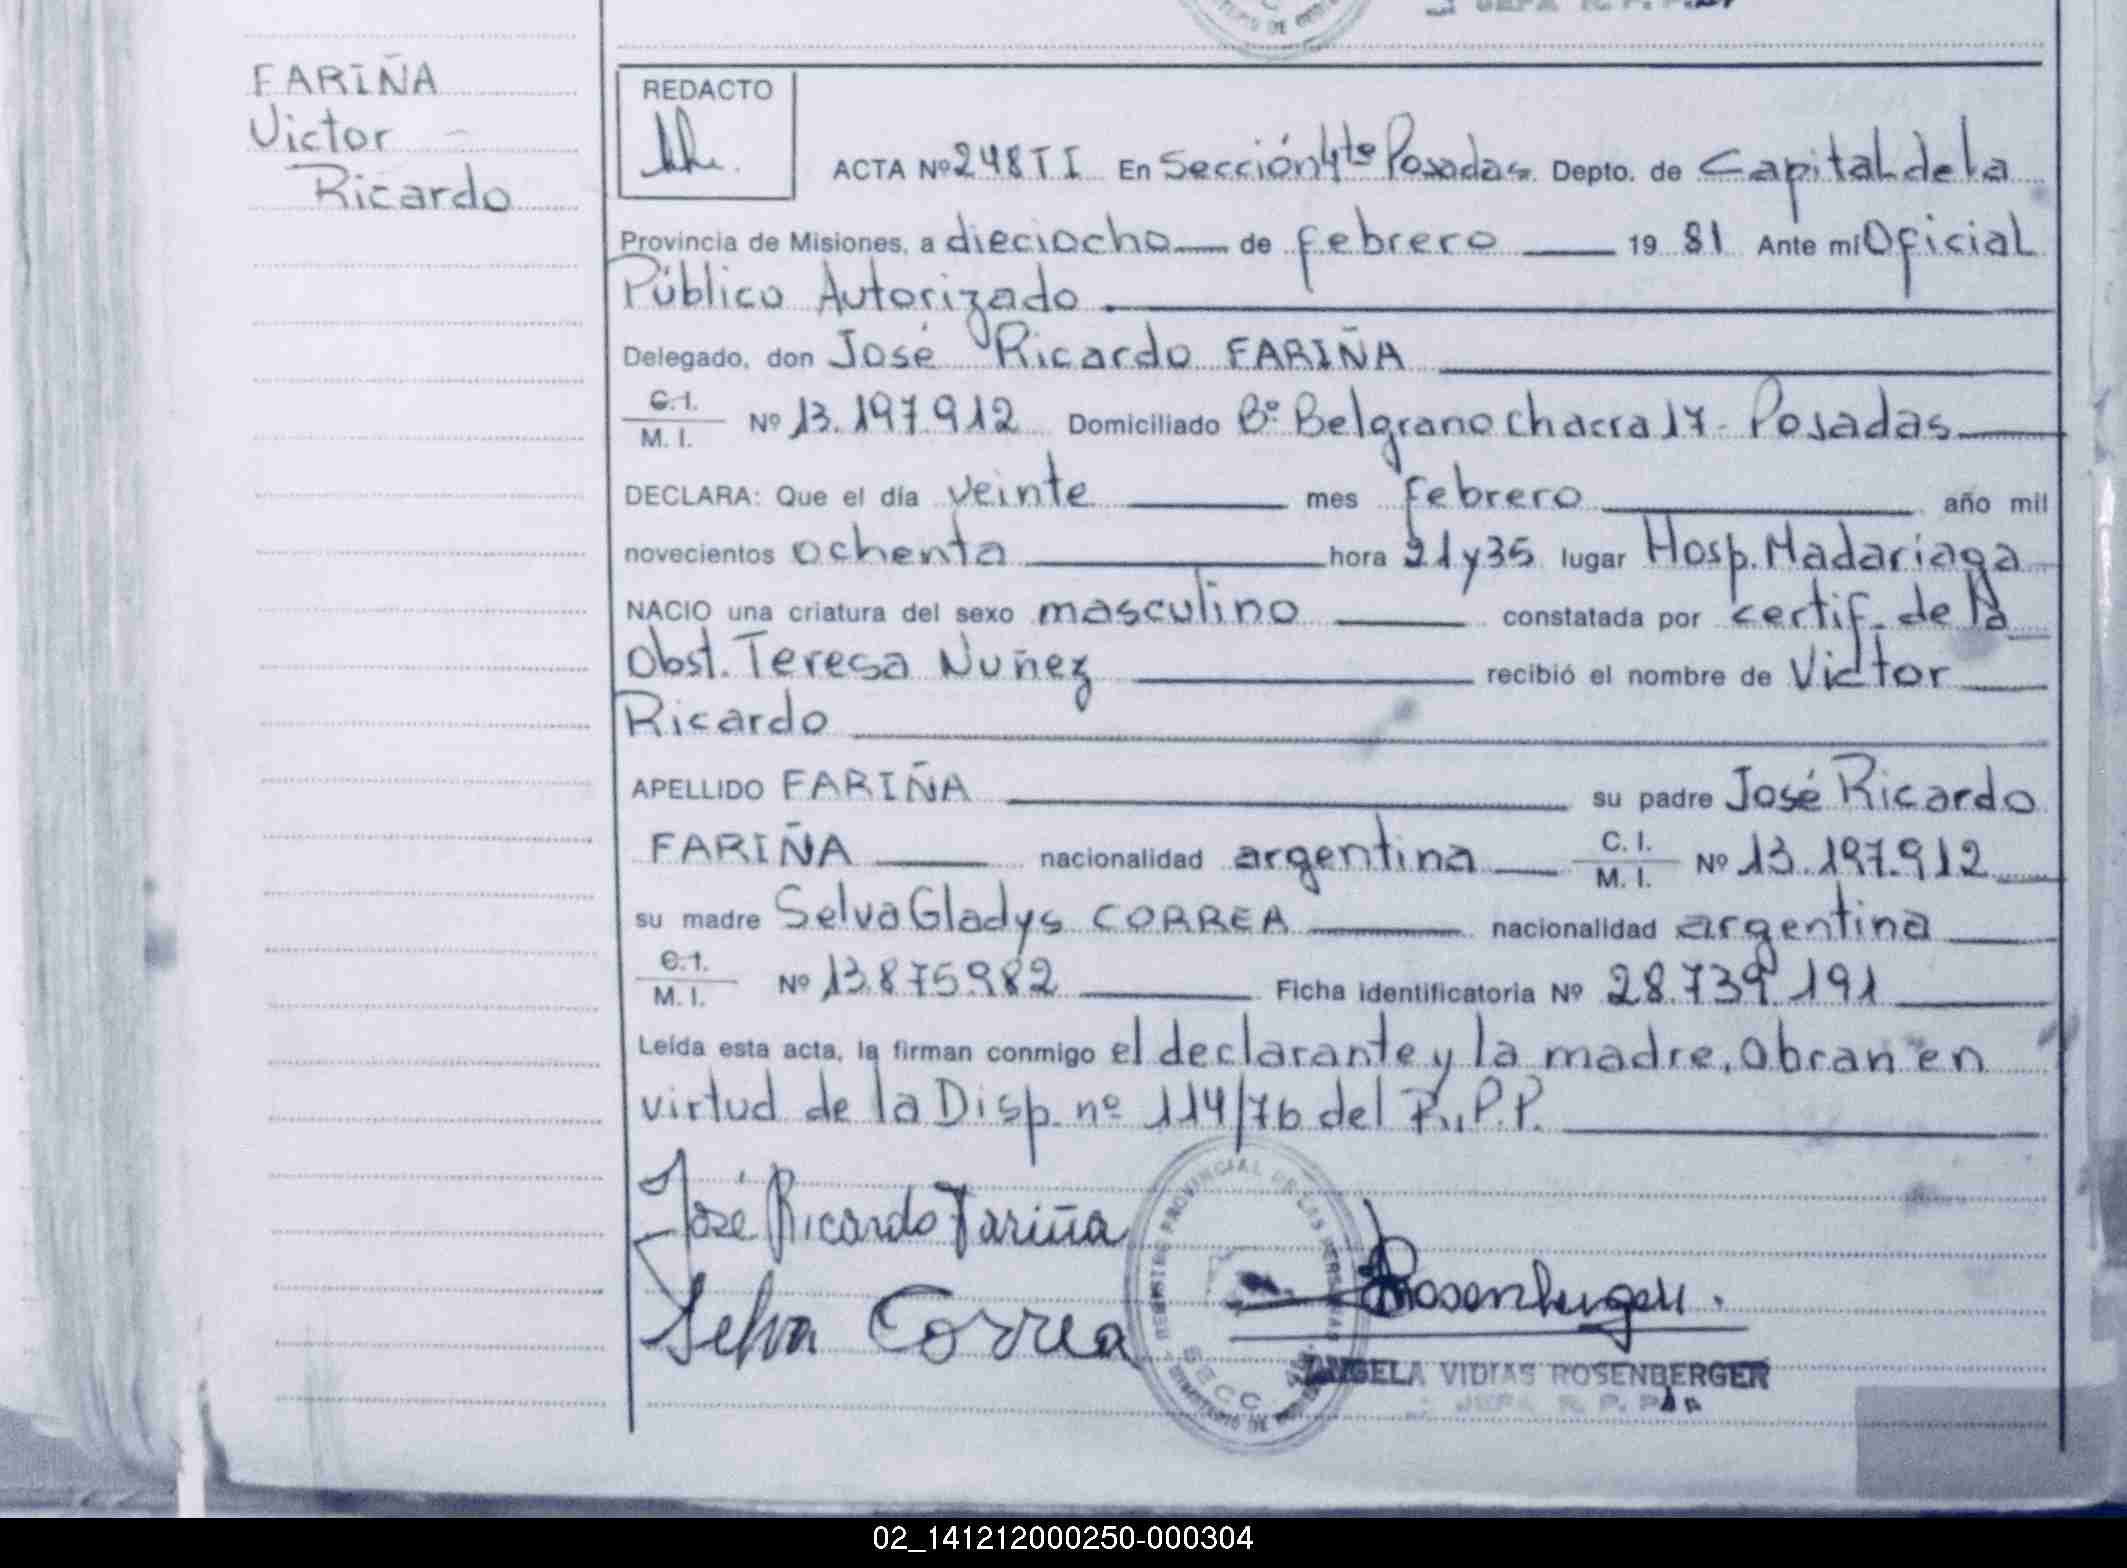 FARIÑA
Victor
Ricardo
REDACTO
ACTA Nº 248 T I En Sección 4ta Posadas Depto. de Capital de la
Provincia de Misiones, a dieciocho de febrero 19 81 Ante mi Oficial
Público Autorizado
Delegado, don José Ricardo FARIÑA
C.I. / M. I. Nº 13.197.912 Domiciliado Bº Belgrano chacra 17 - Posadas
DECLARA: Que el día veinte mes febrero año mil
novecientos ochenta hora 21 y 35 lugar Hosp. Madariaga
NACIO una criatura del sexo masculino constatada por certif. de la
Obst. Teresa Nuñez recibió el nombre de Victor
Ricardo
APELLIDO FARIÑA su padre José Ricardo
FARIÑA nacionalidad argentina C. I. / M. I. Nº 13.197.912
su madre Selva Gladys CORREA nacionalidad argentina
C.I. / M. I. Nº 13.875.982 Ficha identificatoria Nº 28.739.191
Leída esta acta, la firman conmigo el declarante y la madre. Obran en
virtud de la Disp. nº 114/76 del R.P.P.
José Ricardo Fariña
Selva Correa
Rosenberger.
REGISTRO PROVINCIAL DE LAS PERSONAS
SECC
ANGELA VIDIAS ROSENBERGER
JEFA R. P. P.
02_141212000250-000304